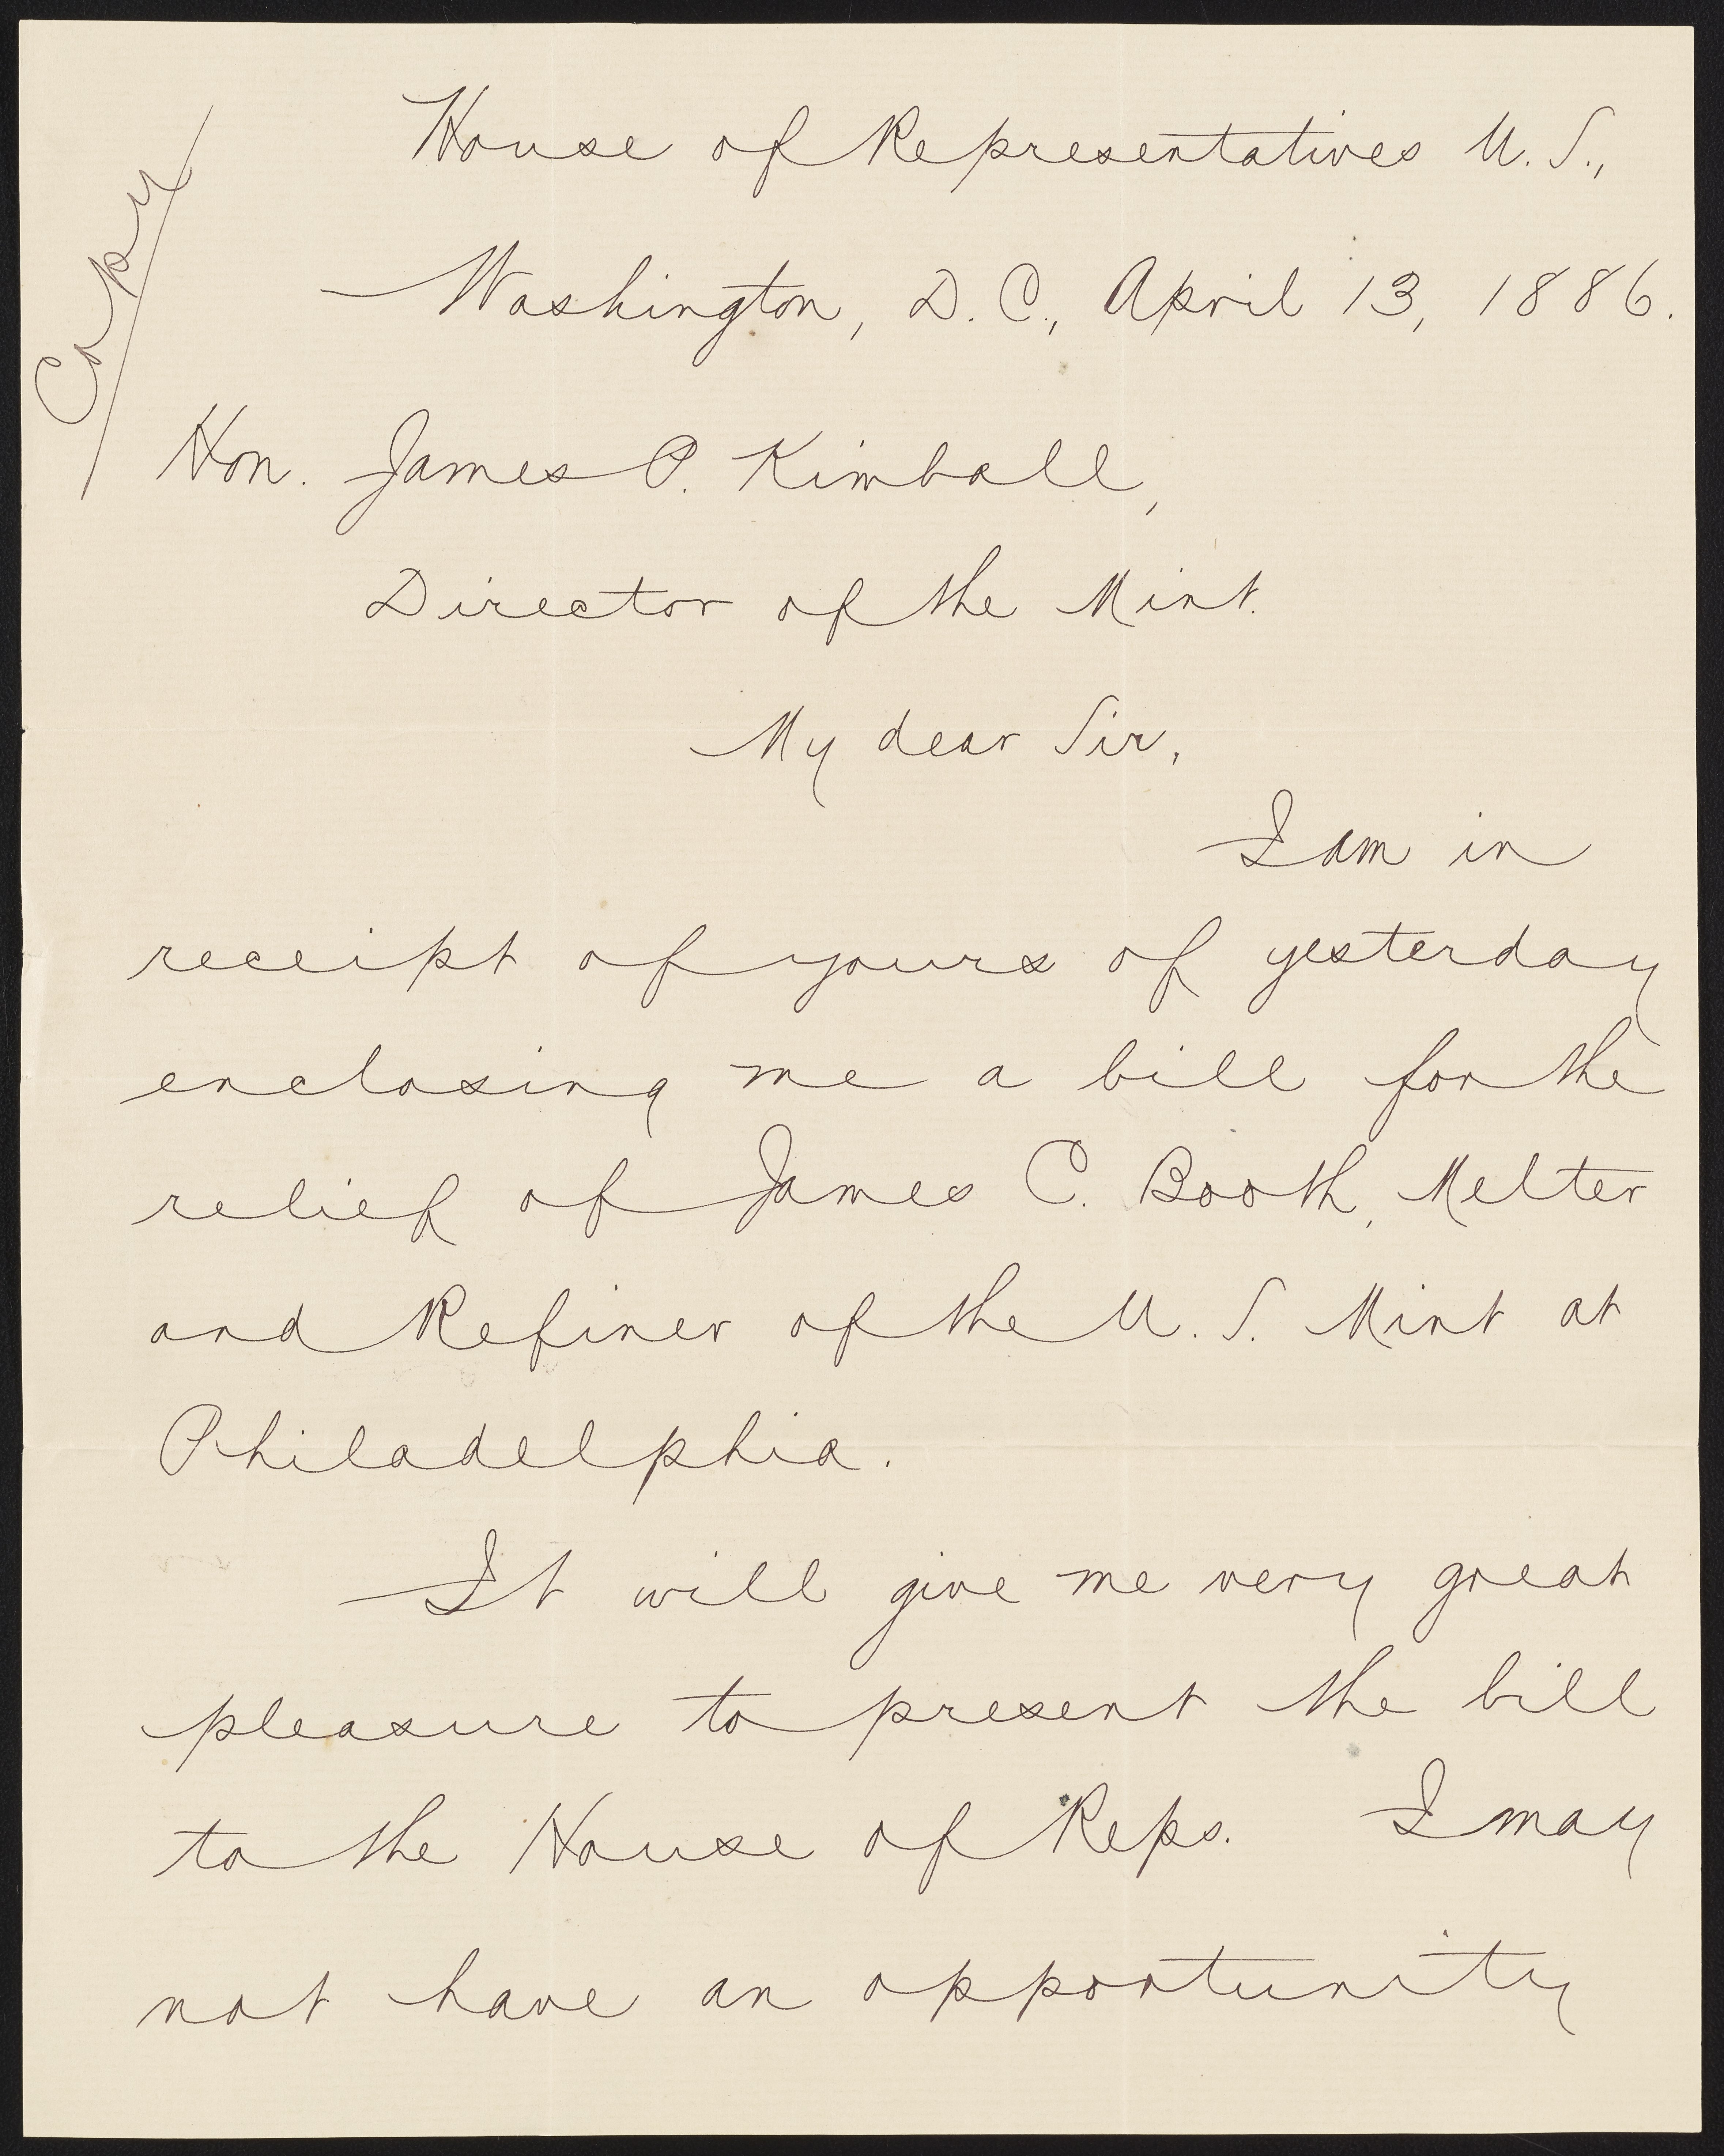 Copy
House of Representatives U. S.,
Washington, D. C., April 13, 1886.
Hon. James P. Kimball,
Director of the Mint.
My dear Sir,
I am in
receipt of yours of yesterday
enclosing me a bill for the
relief of James C. Booth, Melter
and Refiner of the U. S. Mint at
Philadelphia.
It will give me very great
pleasure to present the bill
to the House of Reps. I may
not have an opportunity